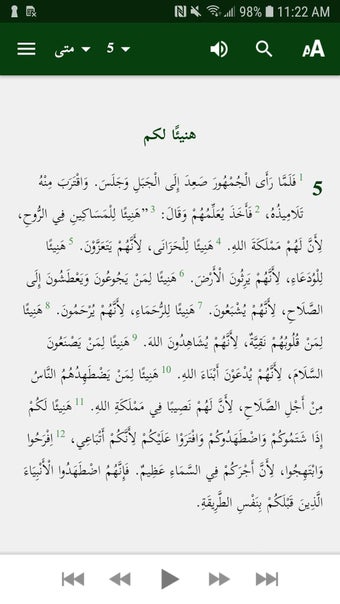 98% 11:22 AM
متى 5 AA
هنيئًا لكم
5 1 فَلَمَّا رَأَى الْجُمْهُورَ صَعِدَ إِلَى الْجَبَلِ وَجَلَسَ. وَاقْتَرَبَ مِنْهُ
تَلَامِيذُهُ، 2 فَأَخَذَ يُعَلِّمُهُمْ وَقَالَ: 3 ”هَنِيئًا لِلْمَسَاكِينِ فِي الرُّوحِ،
لِأَنَّ لَهُمْ مَمْلَكَةَ اللهِ. 4 هَنِيئًا لِلْحَزَانَى، لِأَنَّهُمْ يَتَعَزَّوْنَ. 5 هَنِيئًا
لِلْوُدَعَاءِ، لِأَنَّهُمْ يَرِثُونَ الْأَرْضَ. 6 هَنِيئًا لِمَنْ يَجُوعُونَ وَيَعْطَشُونَ إِلَى
الصَّلَاحِ، لِأَنَّهُمْ يُشْبَعُونَ. 7 هَنِيئًا لِلرُّحَمَاءِ، لِأَنَّهُمْ يُرْحَمُونَ. 8 هَنِيئًا
لِمَنْ قُلُوبُهُمْ نَقِيَّةٌ، لِأَنَّهُمْ يُشَاهِدُونَ اللهَ. 9 هَنِيئًا لِمَنْ يَصْنَعُونَ
السَّلَامَ، لِأَنَّهُمْ يُدْعَوْنَ أَبْنَاءَ اللهِ. 10 هَنِيئًا لِمَنْ يَضْطَهِدُهُمُ النَّاسُ
مِنْ أَجْلِ الصَّلَاحِ، لِأَنَّ لَهُمْ نَصِيبًا فِي مَمْلَكَةِ اللهِ. 11 هَنِيئًا لَكُمْ
إِذَا شَتَمُوكُمْ وَاضْطَهَدُوكُمْ وَافْتَرَوْا عَلَيْكُمْ لِأَنَّكُمْ أَتْبَاعِي، 12 اِفْرَحُوا
وَابْتَهِجُوا، لِأَنَّ أَجْرَكُمْ فِي السَّمَاءِ عَظِيمٌ. فَإِنَّهُمُ اضْطَهَدُوا الْأَنْبِيَاءَ
الَّذِينَ قَبْلَكُمْ بِنَفْسِ الطَّرِيقَةِ.